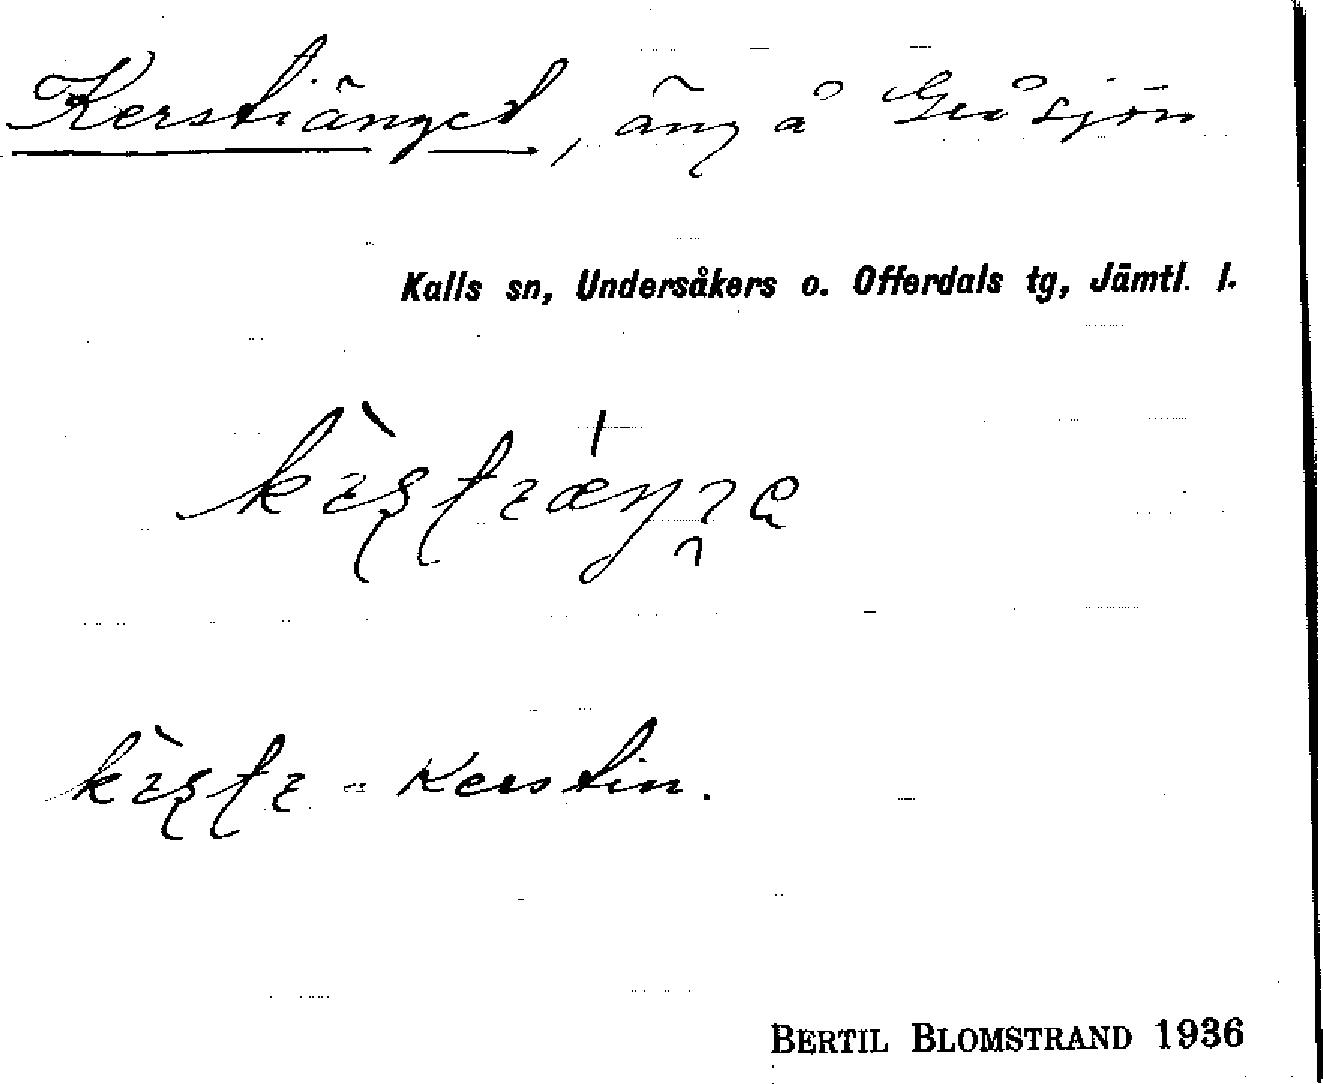 Kerstiänget, äng å Gåsjön
Kalls sn, Undersåkers o. Offerdals tg, Jämtl. l.
= Kerstin.
BERTIL BLOMSTRAND 1936